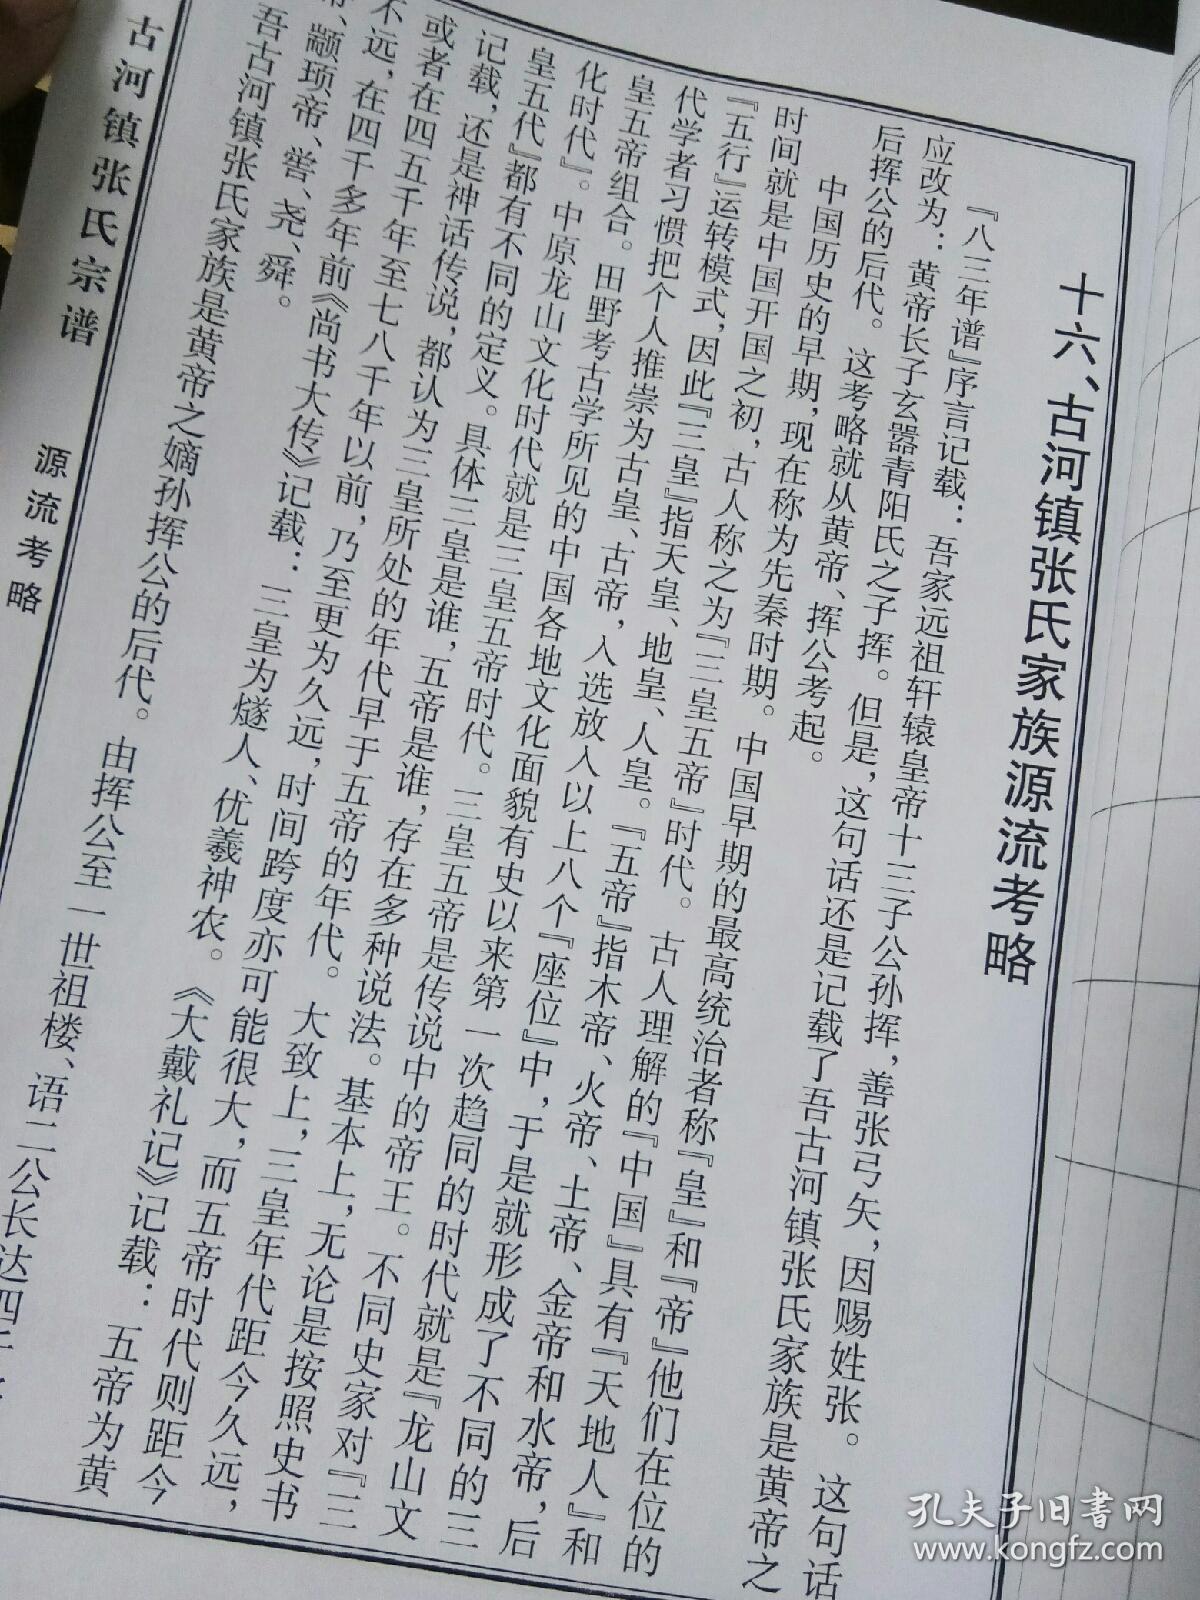 十六、古河镇张氏家族源流考略
『八三年谱』序言记载：吾家远祖轩辕皇帝十三子公孙挥，善张弓矢，因赐姓张。这句话
应改为：黄帝长子玄嚣青阳氏之子挥。但是，这句话还是记载了吾古河镇张氏家族是黄帝之
后挥公的后代。这考略就从黄帝、挥公考起。
中国历史的早期，现在称为先秦时期。中国早期的最高统治者称『皇』和『帝』他们在位的
时间就是中国开国之初，古人称之为『三皇五帝』时代。古人理解的『中国』具有『天地人』和
『五行』运转模式，因此『三皇』指天皇、地皇、人皇。『五帝』指木帝、火帝、土帝、金帝和水帝，后
代学者习惯把个人推崇为古皇、古帝，入选放入以上八个『座位』中，于是就形成了不同的三
皇五帝组合。田野考古学所见的中国各地文化面貌有史以来第一次趋同的时代就是『龙山文
化时代』。中原龙山文化时代就是三皇五帝时代。三皇五帝是传说中的帝王。不同史家对『三
皇五代』都有不同的定义。具体三皇是谁，五帝是谁，存在多种说法。基本上，无论是按照史书
记载，还是神话传说，都认为三皇所处的年代早于五帝的年代。大致上，三皇年代距今久远，
或者在四五千年至七八千年以前，乃至更为久远，时间跨度亦可能很大，而五帝时代则距今
不远，在四千多年前《尚书大传》记载：三皇为燧人、优羲神农。《大戴礼记》记载：五帝为黄
帝、颛顼帝、喾、尧、舜。
吾古河镇张氏家族是黄帝之嫡孙挥公的后代。由挥公至一世祖楼、语二公长达四千
古河镇张氏宗谱 源流考略
孔夫子旧书网
www.kongfz.com